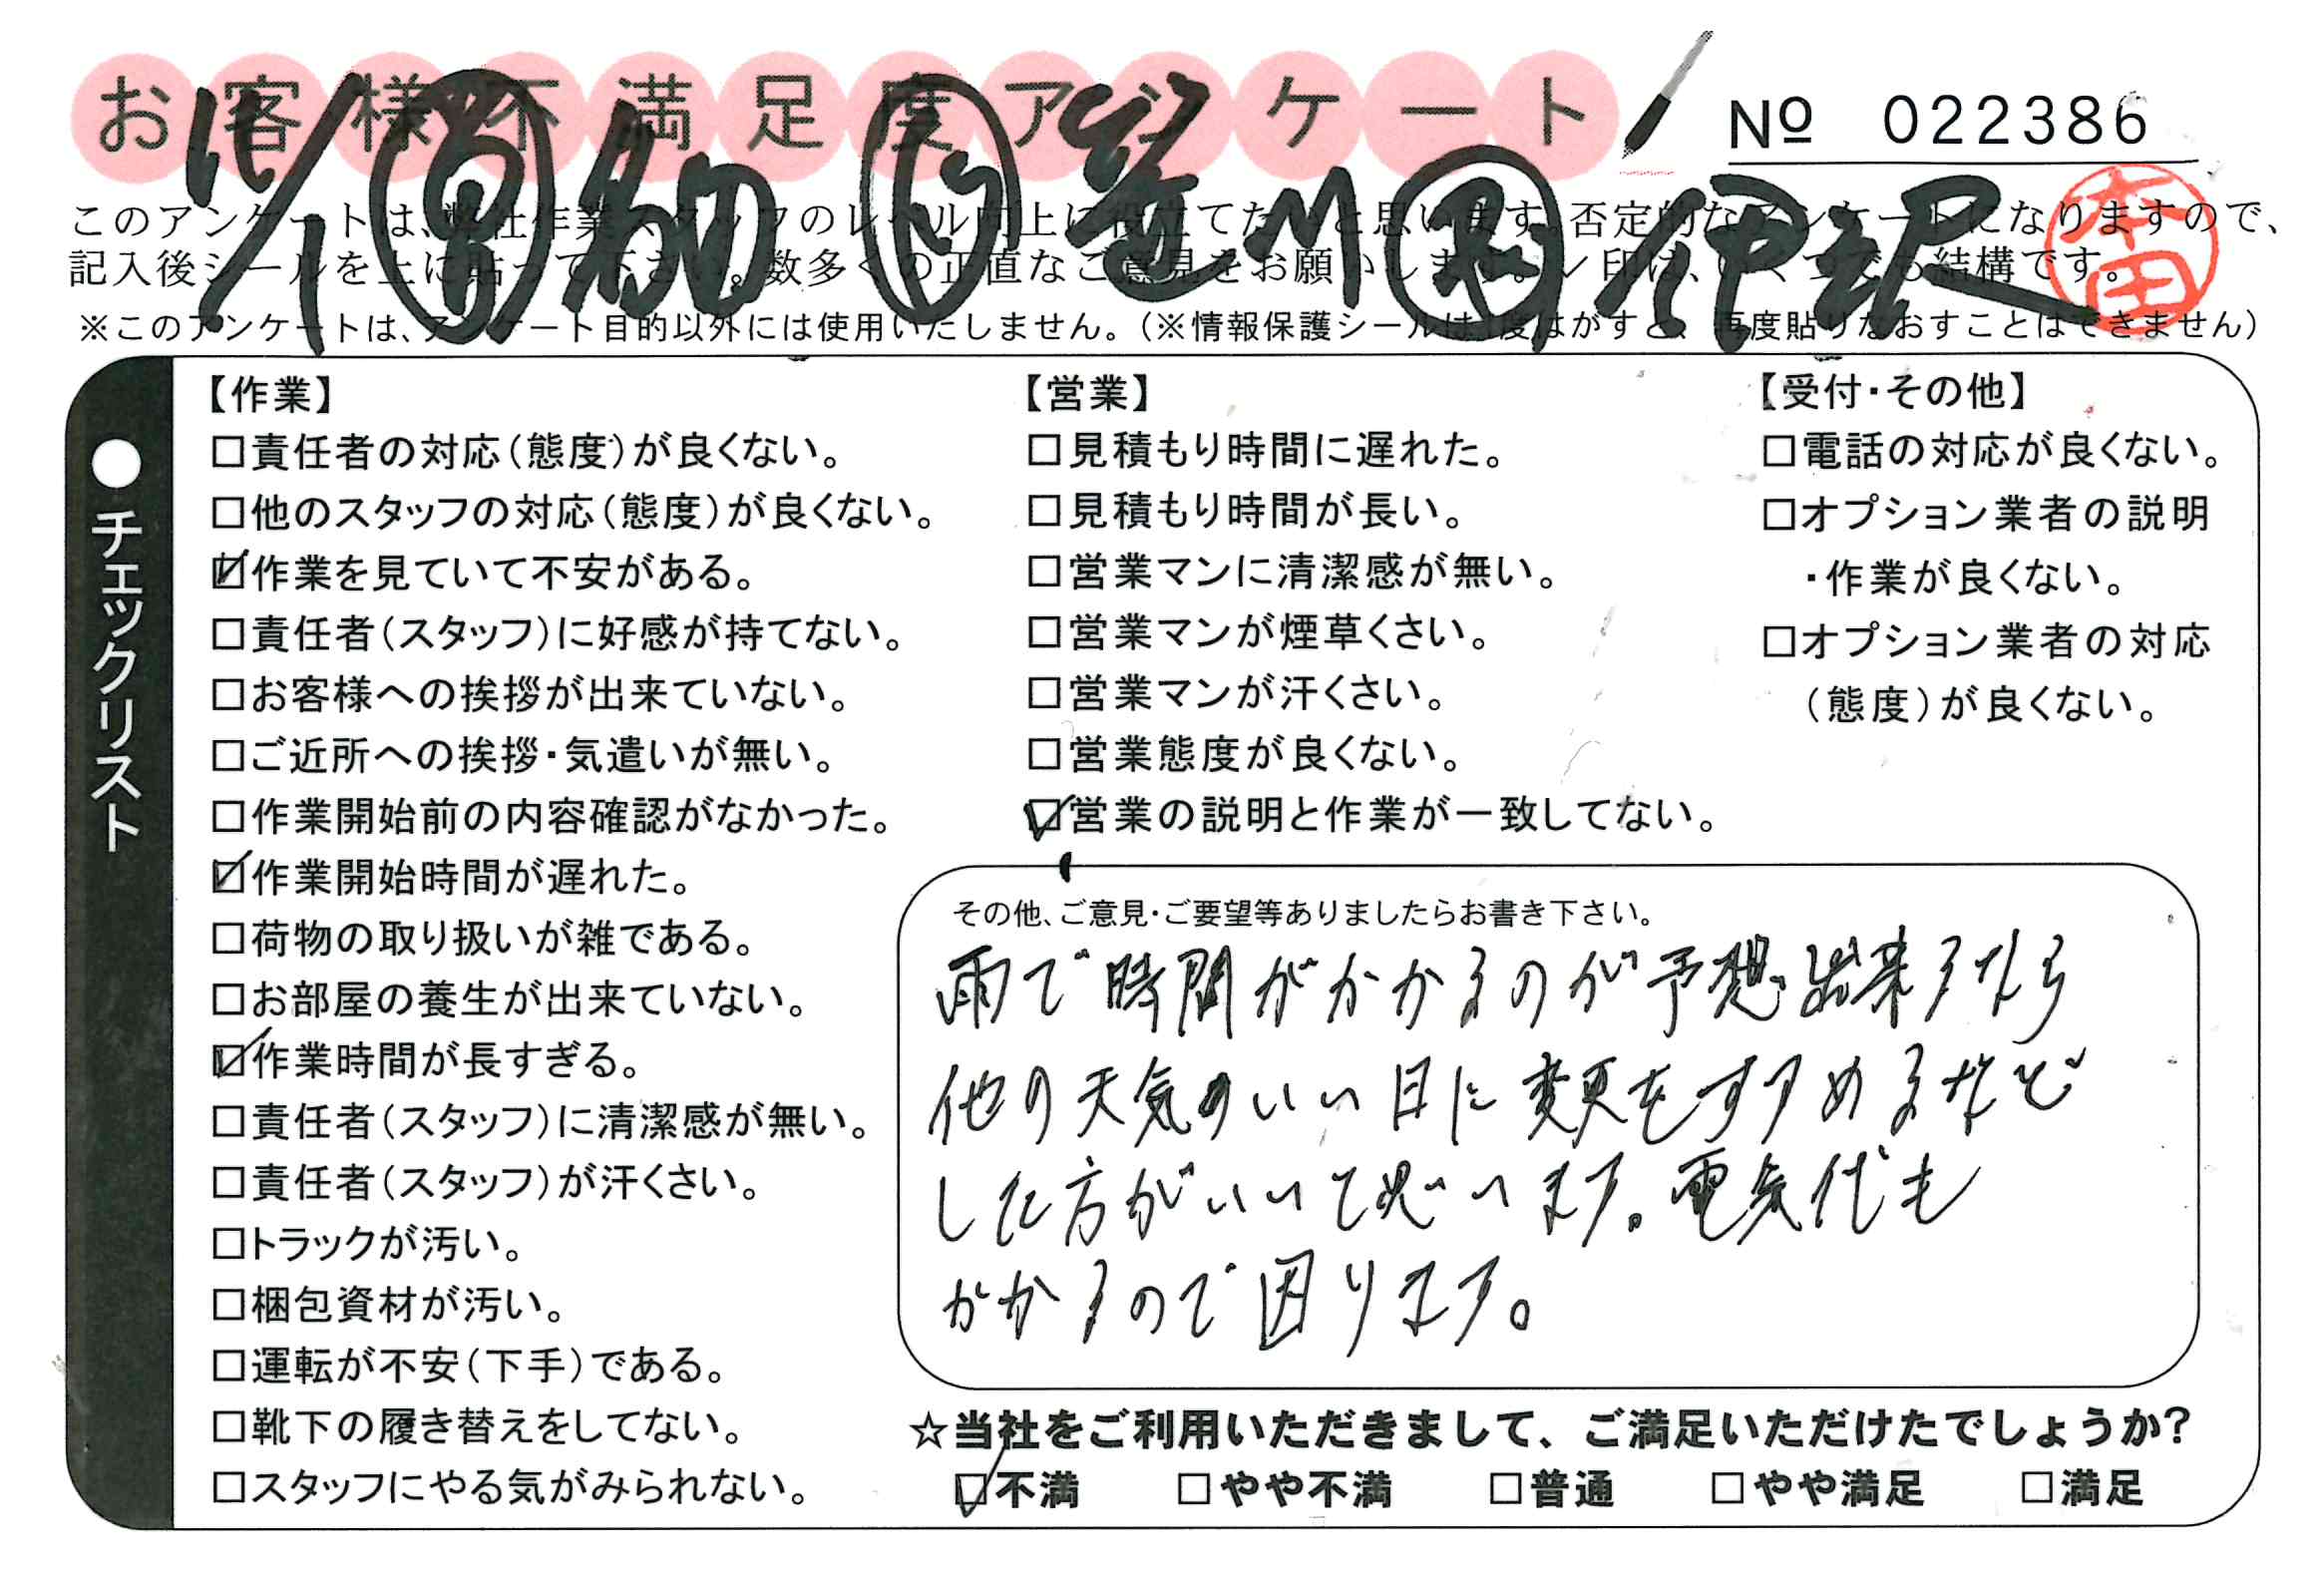 お客様不満足度アンケート
№ 022386
11/1
本田
このアンケートは、弊社作業スタッフのレベル向上に役立てたいと思います。否定的なアンケートになりますので、
記入後シールを上に貼って下さい。数多くの正直なご意見をお願いします。✓印は、いくつでも結構です。
※このアンケートは、アンケート目的以外には使用いたしません。(※情報保護シールは1度はがすと、再度貼りなおすことはできません)
●チェックリスト
【作業】
□責任者の対応(態度)が良くない。
□他のスタッフの対応(態度)が良くない。
☑作業を見ていて不安がある。
□責任者(スタッフ)に好感が持てない。
□お客様への挨拶が出来ていない。
□ご近所への挨拶・気遣いが無い。
□作業開始前の内容確認がなかった。
☑作業開始時間が遅れた。
□荷物の取り扱いが雑である。
□お部屋の養生が出来ていない。
☑作業時間が長すぎる。
□責任者(スタッフ)に清潔感が無い。
□責任者(スタッフ)が汗くさい。
□トラックが汚い。
□梱包資材が汚い。
□運転が不安(下手)である。
□靴下の履き替えをしてない。
□スタッフにやる気がみられない。
【営業】
□見積もり時間に遅れた。
□見積もり時間が長い。
□営業マンに清潔感が無い。
□営業マンが煙草くさい。
□営業マンが汗くさい。
□営業態度が良くない。
☑営業の説明と作業が一致してない。
【受付・その他】
□電話の対応が良くない。
□オプション業者の説明
・作業が良くない。
□オプション業者の対応
(態度)が良くない。
その他、ご意見・ご要望等ありましたらお書き下さい。
雨で時間がかかるのが予想出来るなら
他の天気のいい日に変更をすすめるなど
した方がいいと思います。電気代も
かかるので困ります。
☆当社をご利用いただきまして、ご満足いただけたでしょうか?
☑不満 □やや不満 □普通 □やや満足 □満足